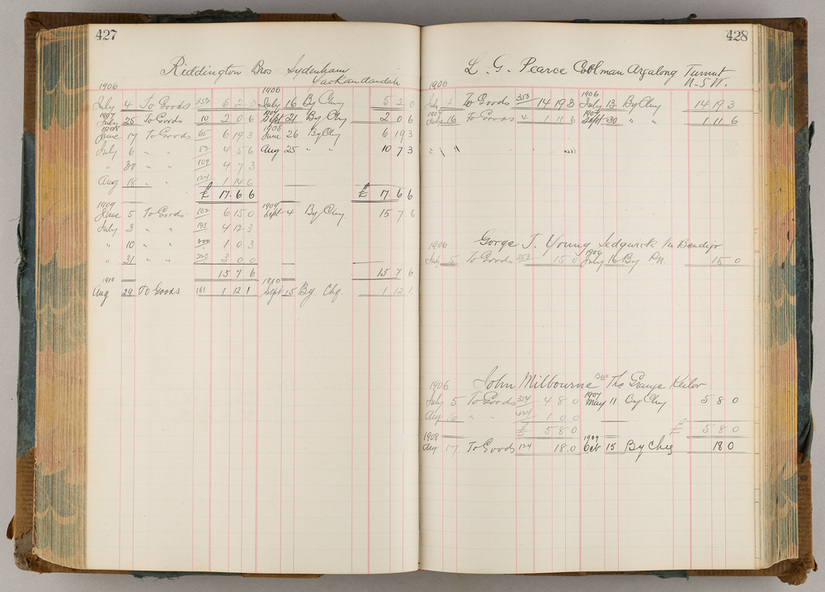 427
Riddington Bros Sydenham
Yackandandah
1906 1906
July 4 To Goods 5 2 0 July 16 By Chq 5 2 0
1907 1907
25 To Goods 10 2 0 6 Sept 21 By Chq 2 0 6
1908 1908
June 17 To Goods 65 6 19 3 June 26 By Chq 6 19 3
July 6 " " 4 5 6 Aug 25 " " 10 7 3
" 30 " " 109 4 7 3
Aug 18 " " 124 1 14 6
£ 17 6 6 £ 17 6 6
1909 1909
June 5 To Goods 6 15 0 Sept 4 By Chq 15 7 6
July 3 " " 193 4 12 3
" 10 " " 1 0 3
" 31 " " 3 0 0
15 7 6 15 7 6
1910 1910
Aug 24 To Goods 161 1 12 1 Sept 15 By Chq. 1 12 1
428
L. G. Pearce Coolman Argalong Tumut
N.S.W.
1906 1906
July To Goods 353 14 19 3 July 13 By Chq 14 19 3
1907 1907
16 To Goods 4 1 11 6 Sept 30 " " 1 11 6
1906 George T. Young Sedgwick Via Bendigo
1906
July 5 To Goods 353 15 0 July 16 By P.N. 15 0
1906 John Milbourne The Grange Keilor
1907
July 5 To Goods 354 4 8 0 May 11 By Chq 5 8 0
Aug 6 " " 1 0 0
£ 5 8 0 £ 5 8 0
1908 1909
Aug 17 To Goods 124 18 0 Oct 15 By Chq 18 0